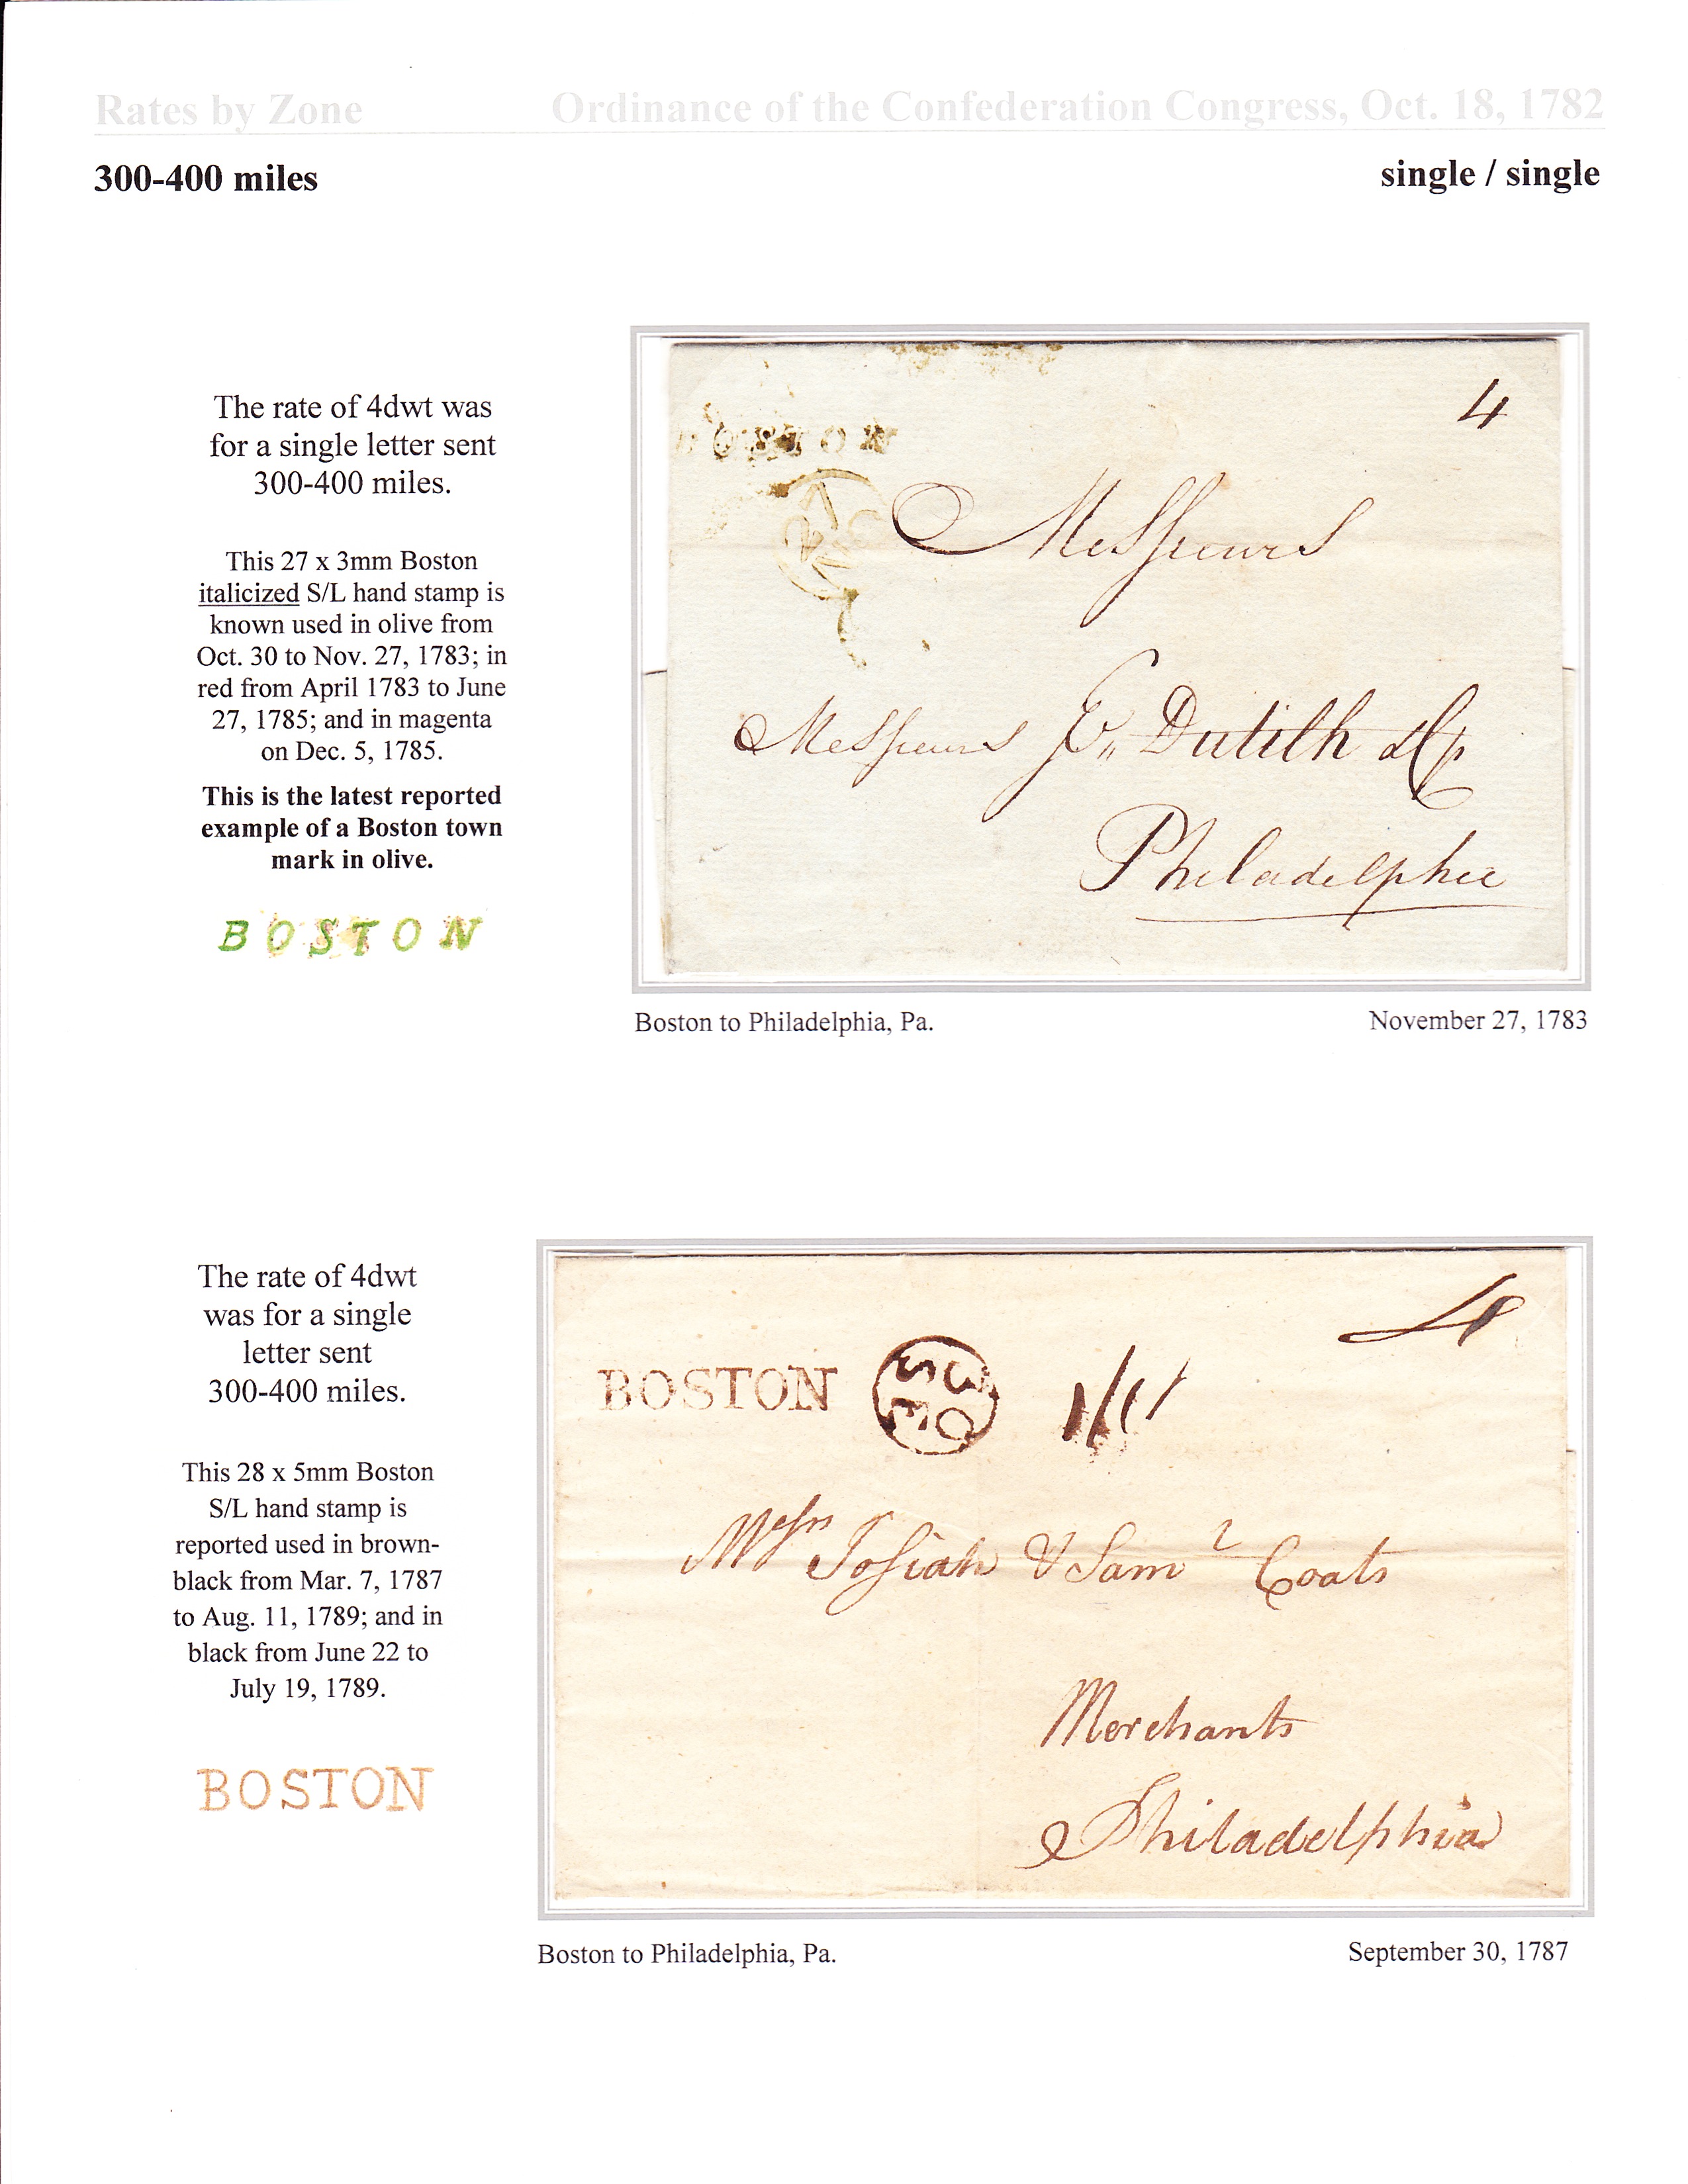 Rates by Zone Ordinance of the Confederation Congress, Oct. 18, 1782
300-400 miles single / single
The rate of 4dwt was
for a single letter sent
300-400 miles.
This 27 x 3mm Boston
italicized S/L hand stamp is
known used in olive from
Oct. 30 to Nov. 27, 1783; in
red from April 1783 to June
27, 1785; and in magenta
on Dec. 5, 1785.
This is the latest reported
example of a Boston town
mark in olive.
BOSTON
4
BOSTON
Messieurs
Messieurs Dutilh & Cº
Philadelphie
Boston to Philadelphia, Pa. November 27, 1783
The rate of 4dwt
was for a single
letter sent
300-400 miles.
This 28 x 5mm Boston
S/L hand stamp is
reported used in brown-
black from Mar. 7, 1787
to Aug. 11, 1789; and in
black from June 22 to
July 19, 1789.
BOSTON
4
BOSTON 30 SE
Messrs Josiah & Saml Coats
Merchants
Philadelphia
Boston to Philadelphia, Pa. September 30, 1787